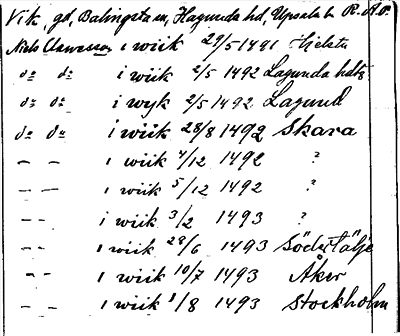 Vik gd, Balingsta sn, Hagunda hd, Upsala ln R.A.O.
Niels Clawessen i wiik 29/5 1491 Hjelsta
do do i wiik 2/5 1492 Lagunda hdtg
do do i wyk 2/5 1492 Lagund
do do i wiik 28/8 1492 Skara
– – i wiik 4/12 1492 ?
– – i wiik 5/12 1492 ?
i wiik 3/2 1493 ?
– – i wiik 28/6 1493 Södertälje
– – i wiik 10/7 1493 Åker
– – i wiik 1/8 1493 Stockholm